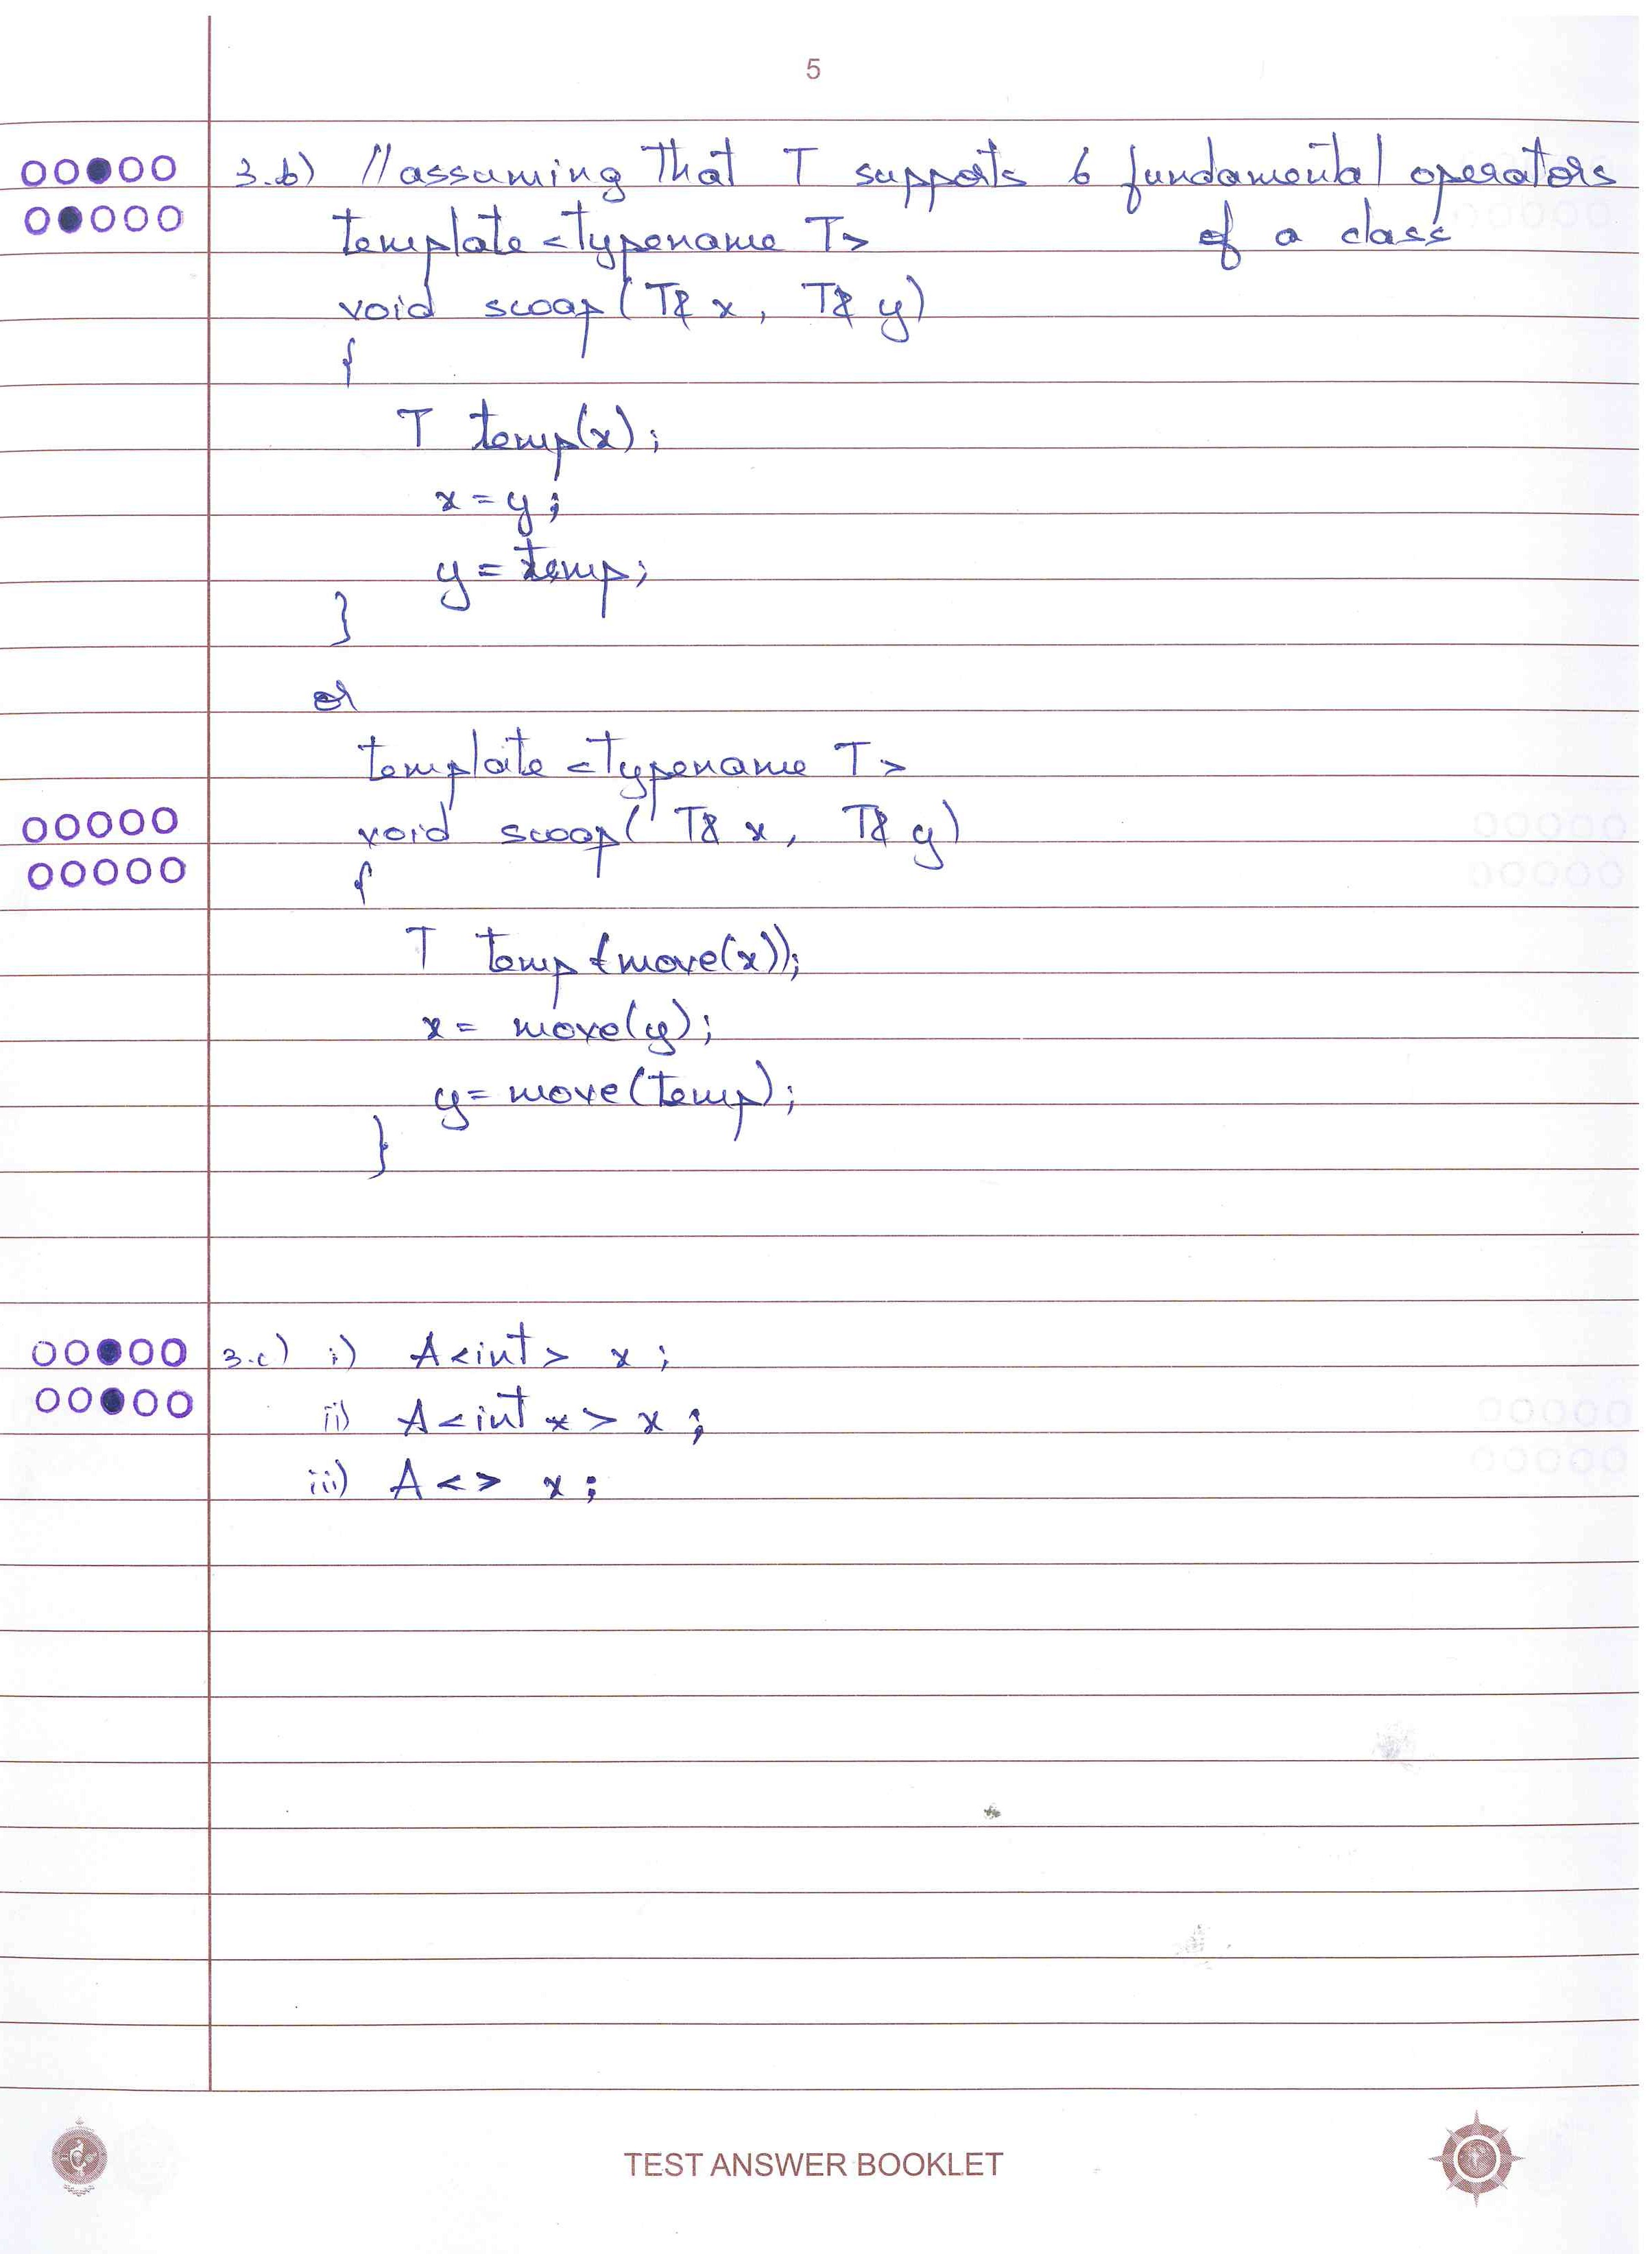 5
3.b) //assuming that T supports 6 fundamental operators
of a class
template <typename T>
void swap(T& x, T& y)
{
T temp(x);
x = y;
y = temp;
}
or
template <typename T>
void swap(T& x, T& y)
{
T temp(move(x));
x = move(y);
y = move(temp);
}
3.c) i) A<int> x;
ii) A<int *> x;
iii) A<> x;
TEST ANSWER BOOKLET